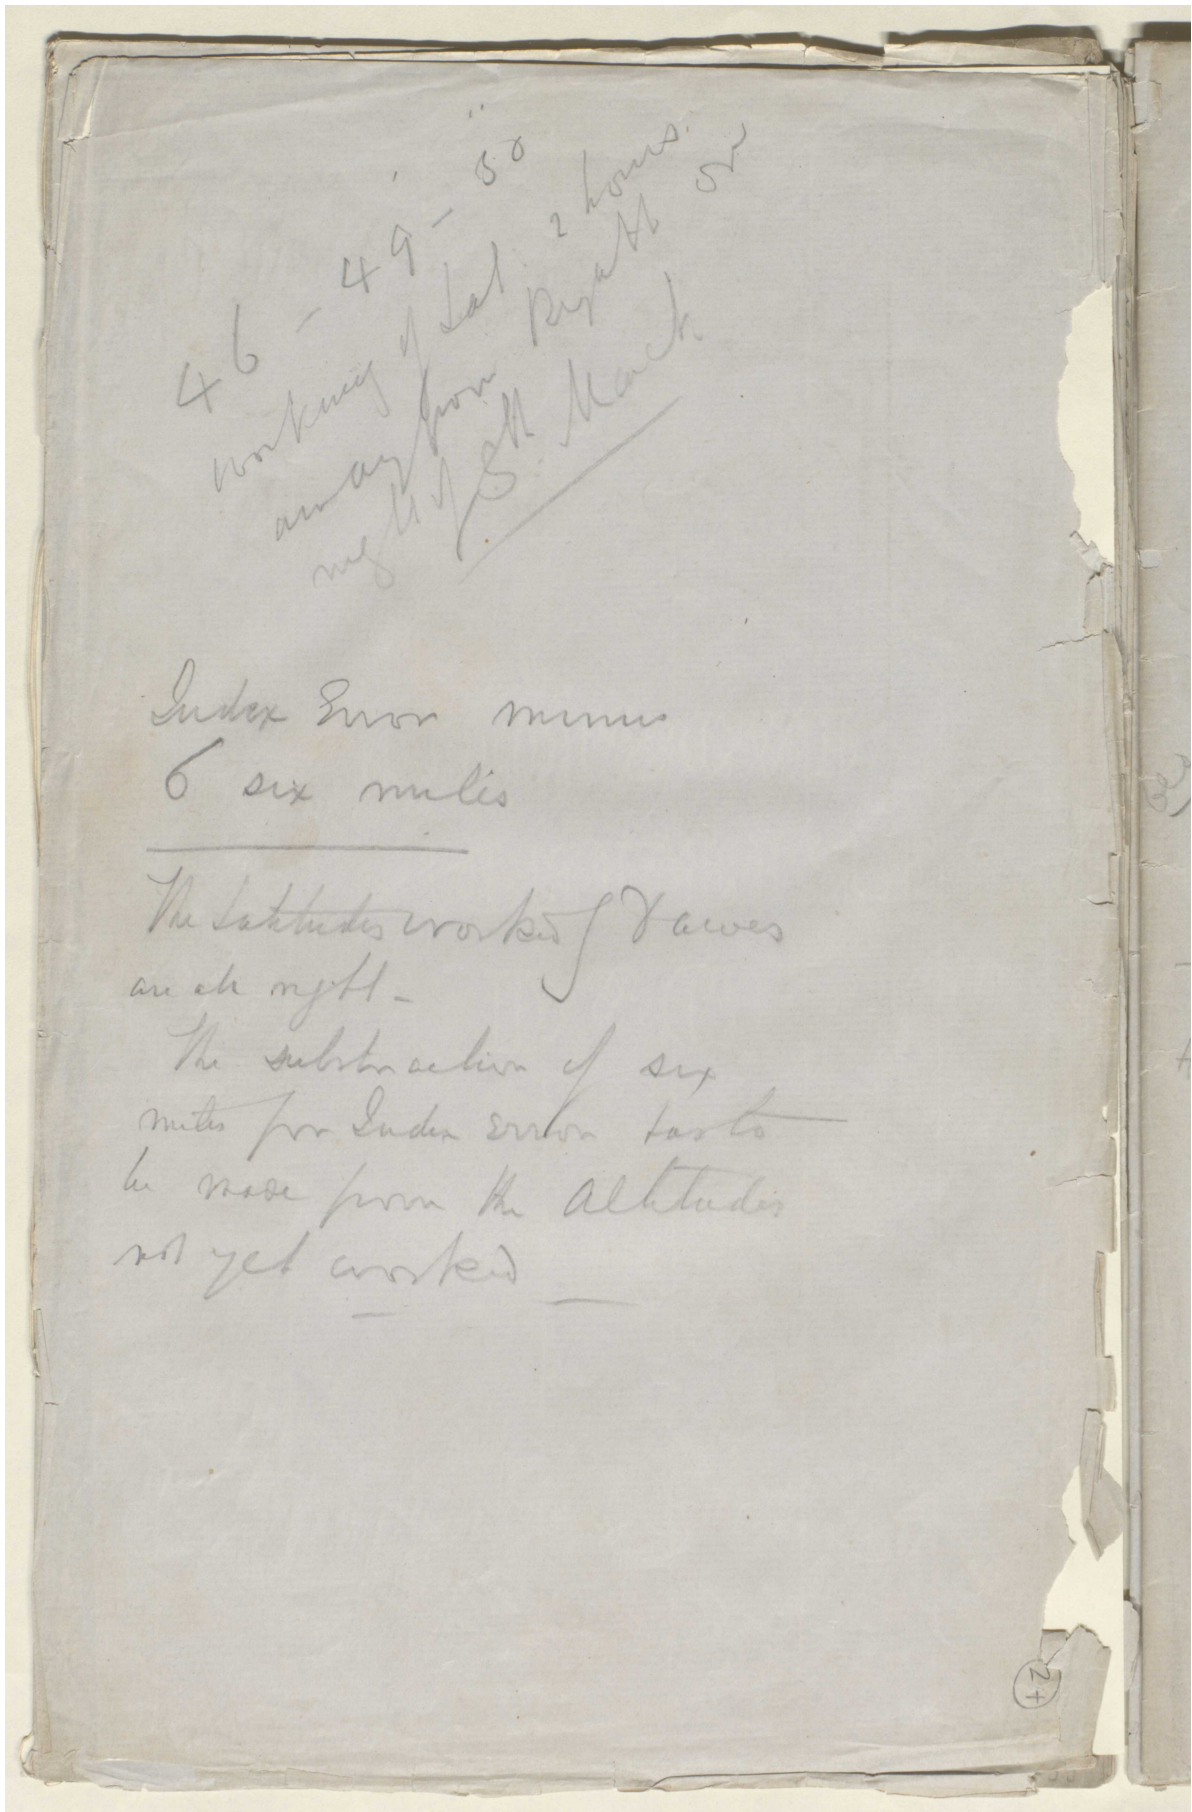 46 - 49' - 50"
working of Lat. 2 hours
away from on
night of 8th March
Index Error minus
6 six miles
The Latitudes worked Dawes
are all right -
The substraction of six
miles for Index Error has to
be made from the Altitudes
not yet worked -
24